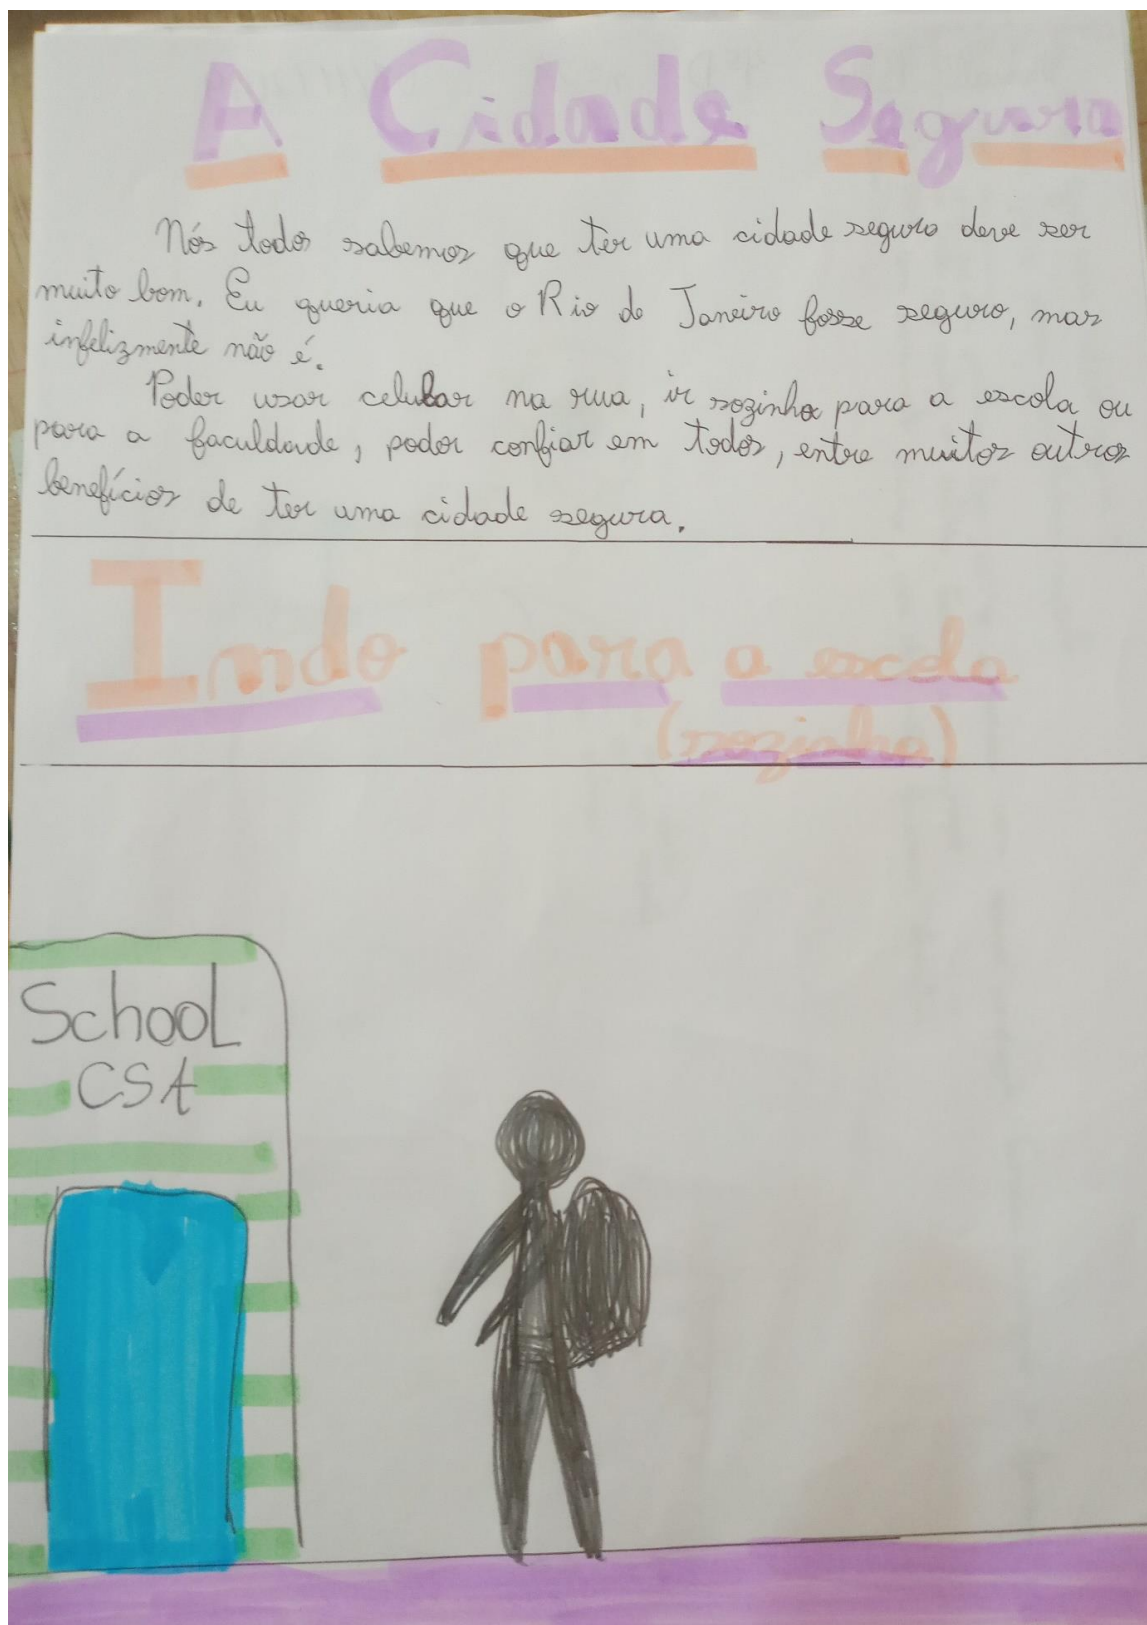 A Cidade Segura
Nós todos sabemos que ter uma cidade segura deve ser
muito bom. Eu queria que o Rio de Janeiro fosse seguro, mas
infelizmente não é.
Poder usar celular na rua, ir sozinha para a escola ou
para a faculdade, poder confiar em todos, entre muitos outros
benefícios de ter uma cidade segura.
Indo para a escola
(sozinha)
School
CSA